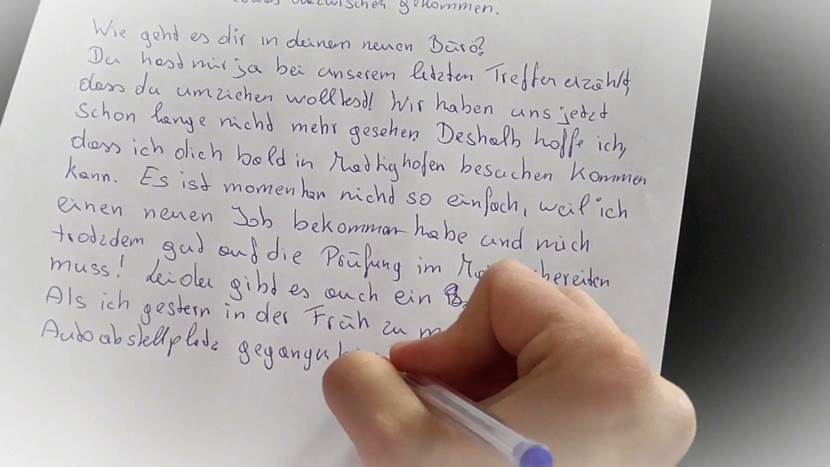 dazwischen gekommen.
Wie geht es dir in deinem neuen Büro?
Du hast mir ja bei unserem letzten Treffen erzählt,
dass du umziehen wolltest! Wir haben uns jetzt
schon lange nicht mehr gesehen. Deshalb hoffe ich,
dass ich dich bald in Mattighofen besuchen kommen
kann. Es ist momentan nicht so einfach, weil ich
einen neuen Job bekommen habe und mich
trotzdem gut auf die Prüfung im bereiten
muss! Leider gibt es auch ein
Als ich gestern in der Früh zu m
Autoabstellplatz gegangen